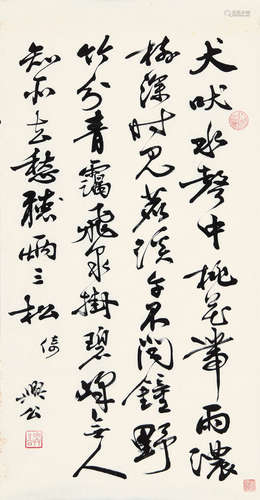 犬吠水聲中桃花帶雨濃
樹深時見鹿溪午不聞鐘野
竹分青靄飛泉掛碧峰無人
知所去愁兩三松
倚
興公